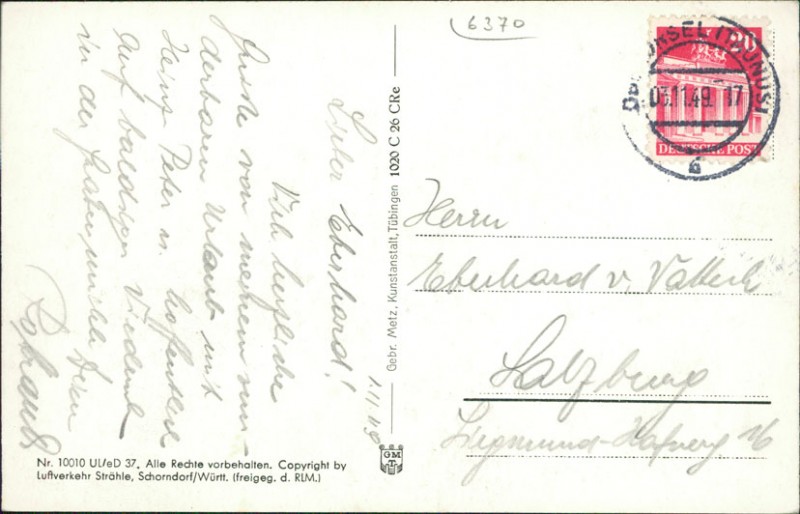 6370
20
OBERURSEL (TAUNUS)
03.11.49. 17
DEUTSCHE POST
a
1.11.49
Lieber Eberhard!
Viele herzliche
Grüße von meinem wun-
derbaren Urlaub mit
Heinz Peter u. hoffentlich
Auf baldiges
in der
Dein
Herrn
Eberhard v.
Salzburg
16
Gebr. Metz, Kunstanstalt, Tübingen 1020 C 26 CRe
GMT
Nr. 10010 UL/eD 37. Alle Rechte vorbehalten. Copyright by
Luftverkehr Strähle, Schorndorf/Württ. (freigeg. d. RLM.)